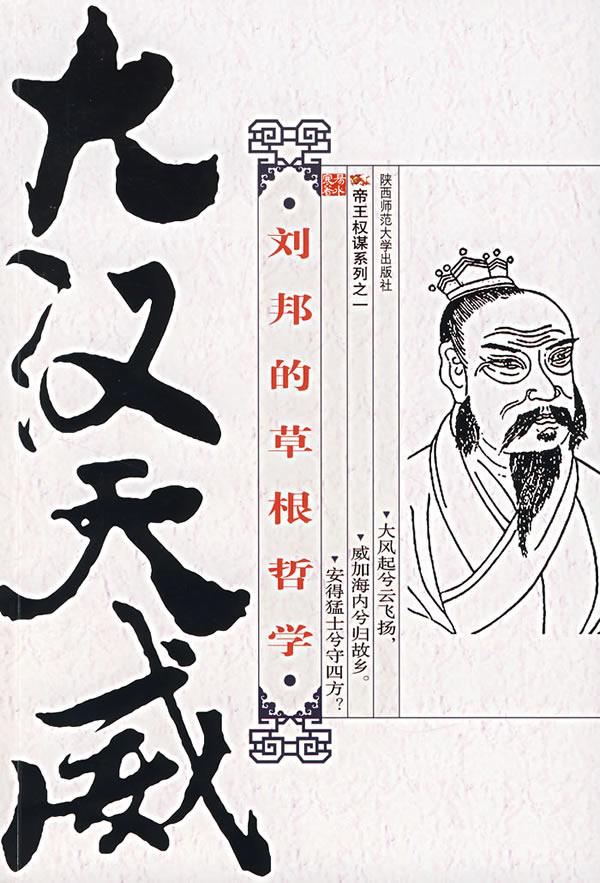 大汉天威
·刘邦的草根哲学·
易水寒著
帝王权谋系列之一
陕西师范大学出版社
大风起兮云飞扬，
威加海内兮归故乡。
安得猛士兮守四方？